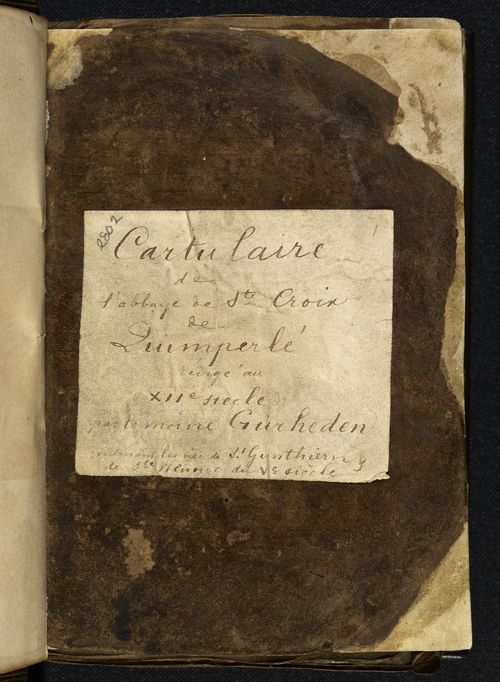 2802
Cartulaire
de
l'abbaye de Ste Croix
de
Quimperlé
rédigé au
XIIe siècle
par le moine Gurheden
contenant les vies de St Gunthiern &
de Ste Ninnoc du Ve siècle